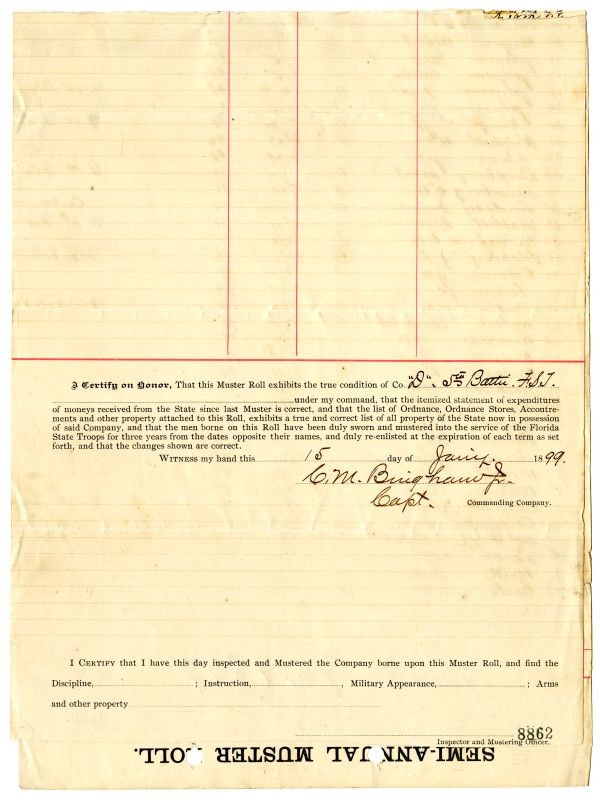 I Certify on Honor, That this Muster Roll exhibits the true condition of Co. "D". 5th Battn. F.S.T.
under my command, that the itemized statement of expenditures
of moneys received from the State since last Muster is correct, and that the list of Ordnance, Ordnance Stores, Accoutre-
ments and other property attached to this Roll, exhibits a true and correct list of all property of the State now in possession
of said Company, and that the men borne on this Roll have been duly sworn and mustered into the service of the Florida
State Troops for three years from the dates opposite their names, and duly re-enlisted at the expiration of each term as set
forth, and that the changes shown are correct.
WITNESS my hand this 15 day of Jany. 1899.
C. M. Bingham Jr.
Capt. Commanding Company.
I CERTIFY that I have this day inspected and Mustered the Company borne upon this Muster Roll, and find the
Discipline, ; Instruction, , Military Appearance, ; Arms
and other property
8862
Inspector and Mustering Officer.
SEMI-ANNUAL MUSTER ROLL.